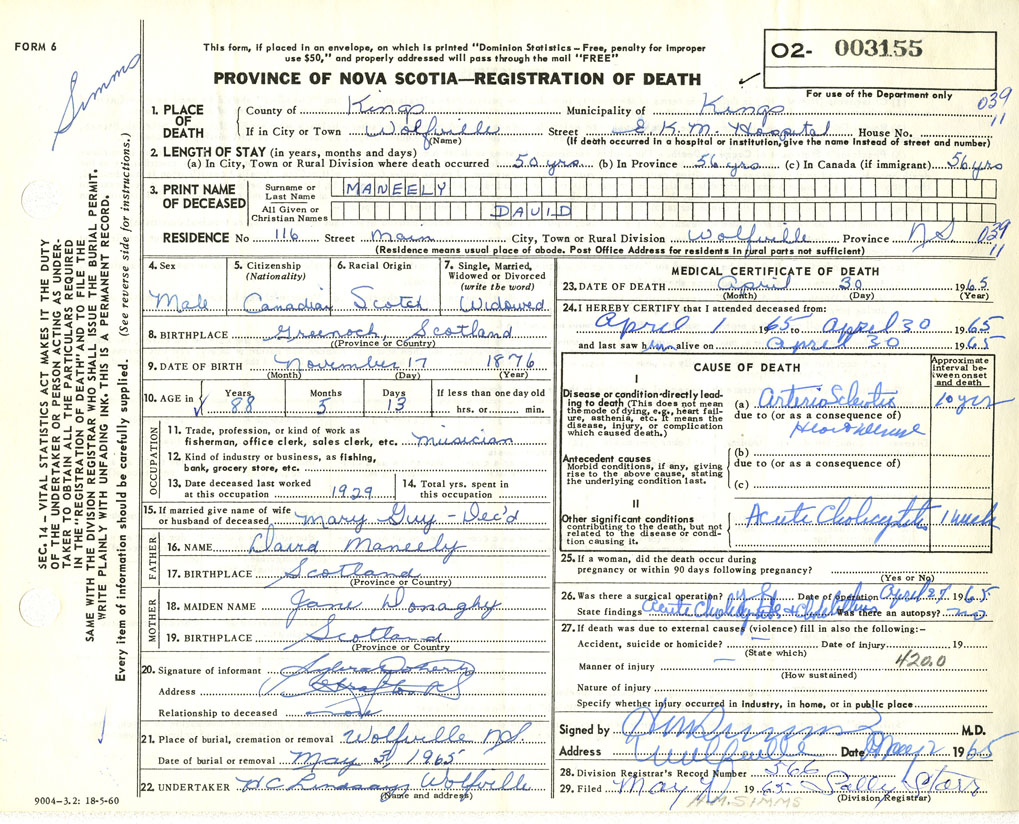 FORM 6
Simms
This form, if placed in an envelope, on which is printed "Dominion Statistics – Free, penalty for improper
use $50," and properly addressed will pass through the mail "FREE"
PROVINCE OF NOVA SCOTIA—REGISTRATION OF DEATH
02- 003155
For use of the Department only
039
11
1. PLACE OF DEATH
County of Kings Municipality of Kings
If in City or Town Wolfville Street E. K. M. Hospital House No.
(Name) (If death occurred in a hospital or institution, give the name instead of street and number)
2. LENGTH OF STAY (in years, months and days)
(a) In City, Town or Rural Division where death occurred 50 yrs (b) In Province 56 yrs (c) In Canada (if immigrant) 56 yrs
3. PRINT NAME OF DECEASED
Surname or Last Name MANEELY
All Given or Christian Names DAVID
RESIDENCE No 116 Street Main City, Town or Rural Division Wolfville Province NS
039
11
(Residence means usual place of abode. Post Office Address for residents in rural parts not sufficient)
4. Sex Male
5. Citizenship (Nationality) Canadian
6. Racial Origin Scotch
7. Single, Married, Widowed or Divorced (write the word) Widowed
8. BIRTHPLACE Greenock, Scotland
(Province or Country)
9. DATE OF BIRTH November 17 1876
(Month) (Day) (Year)
10. AGE in Years Months Days If less than one day old
88 5 13 hrs. or min.
OCCUPATION
11. Trade, profession, or kind of work as
fisherman, office clerk, sales clerk, etc. Musician
12. Kind of industry or business, as fishing,
bank, grocery store, etc.
13. Date deceased last worked
at this occupation 1929
14. Total yrs. spent in
this occupation
15. If married give name of wife
or husband of deceased Mary Guy - Dec'd
FATHER
16. NAME David Maneely
17. BIRTHPLACE Scotland
(Province or Country)
MOTHER
18. MAIDEN NAME Jane Donaghy
19. BIRTHPLACE Scotland
(Province or Country)
20. Signature of informant
Address
Relationship to deceased
21. Place of burial, cremation or removal Wolfville NS.
Date of burial or removal May 3, 1965
22. UNDERTAKER H C Lindsay, Wolfville
(Name and address)
9004–3.2: 18-5-60
MEDICAL CERTIFICATE OF DEATH
23. DATE OF DEATH April 30 1965
(Month) (Day) (Year)
24. I HEREBY CERTIFY that I attended deceased from:
April 1 1965 to April 30 1965
and last saw him alive on April 30 1965
CAUSE OF DEATH
Approximate interval between onset and death
I
Disease or condition directly leading to death (This does not mean the mode of dying, e.g., heart failure, asthenia, etc. It means the disease, injury, or complication which caused death.)
(a) Arterio Sclerotic 10 yrs
due to (or as a consequence of)
Heart disease
Antecedent causes
Morbid conditions, if any, giving rise to the above cause, stating the underlying condition last.
(b)
due to (or as a consequence of)
(c)
II
Other significant conditions
contributing to the death, but not related to the disease or condition causing it.
Acute Cholecystitis 1 week
25. If a woman, did the death occur during
pregnancy or within 90 days following pregnancy?
(Yes or No)
26. Was there a surgical operation? Yes Date of operation April 27 1965
State findings Acute Cholecystitis & Was there an autopsy? no
27. If death was due to external causes (violence) fill in also the following:—
Accident, suicide or homicide? Date of injury 19
(State which)
4200
Manner of injury
(How sustained)
Nature of injury
Specify whether injury occurred in industry, in home, or in public place
Signed by M.D.
Address Wolfville Date May 2 1965
28. Division Registrar's Record Number 566
29. Filed May 1965 Sally Starr
H.M. SIMMS (Division Registrar)
SEC. 14 – VITAL STATISTICS ACT MAKES IT THE DUTY
OF THE UNDERTAKER OR PERSON ACTING AS UNDER-
TAKER TO OBTAIN ALL THE PARTICULARS REQUIRED
IN THE "REGISTRATION OF DEATH" AND TO FILE THE
SAME WITH THE DIVISION REGISTRAR WHO SHALL ISSUE THE BURIAL PERMIT.
WRITE PLAINLY WITH UNFADING INK. THIS IS A PERMANENT RECORD.
Every item of information should be carefully supplied. (See reverse side for instructions.)